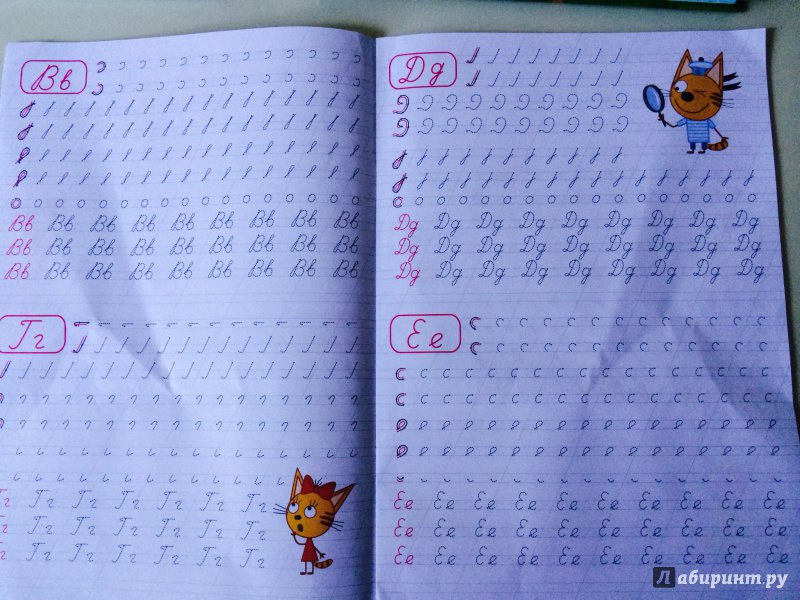 Вв
Вв Вв Вв Вв Вв Вв Вв Вв Вв
Вв Вв Вв Вв Вв Вв Вв Вв Вв
Вв Вв Вв Вв Вв Вв Вв Вв Вв
Гг
Гг Гг Гг Гг Гг Гг Гг
Гг Гг Гг Гг Гг Гг Гг
Гг Гг Гг Гг Гг Гг Гг
Дд
Дд Дд Дд Дд Дд Дд Дд Дд Дд
Дд Дд Дд Дд Дд Дд Дд Дд Дд
Дд Дд Дд Дд Дд Дд Дд Дд Дд
Ее
Ее Ее Ее Ее Ее Ее Ее Ее Ее Ее
Ее Ее Ее Ее Ее Ее Ее Ее Ее Ее
Ее Ее Ее Ее Ее Ее Ее Ее Ее Ее
Лабиринт.ру